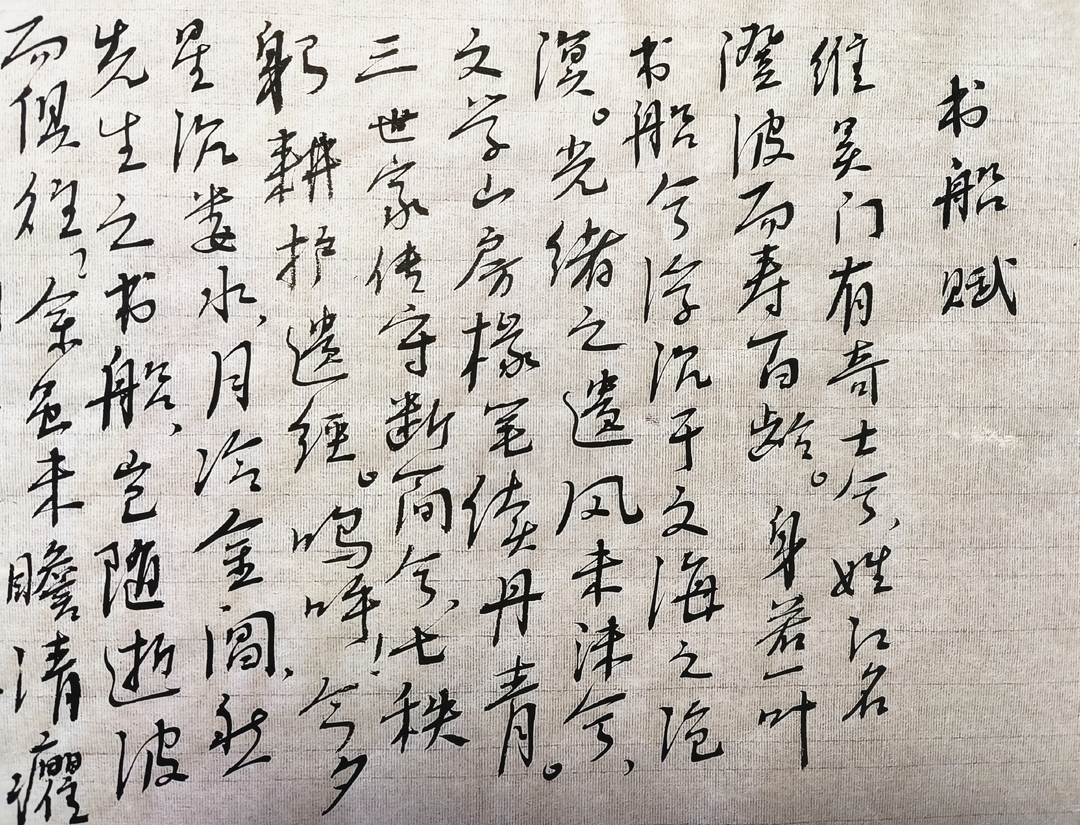 书船赋
维吴门有奇士兮，姓江名
澄波而寿百龄。身若一叶
书船兮浮沉于文海之沧
溟。光绪之遗风未沫兮，
文学山房椽笔续丹青。
三世家传守断简兮，七秩
躬耕护遗经。呜呼！今夕
星沉娄水，月冷金阊，然
先生之书船，岂随逝波
而俱往？余虽未瞻清